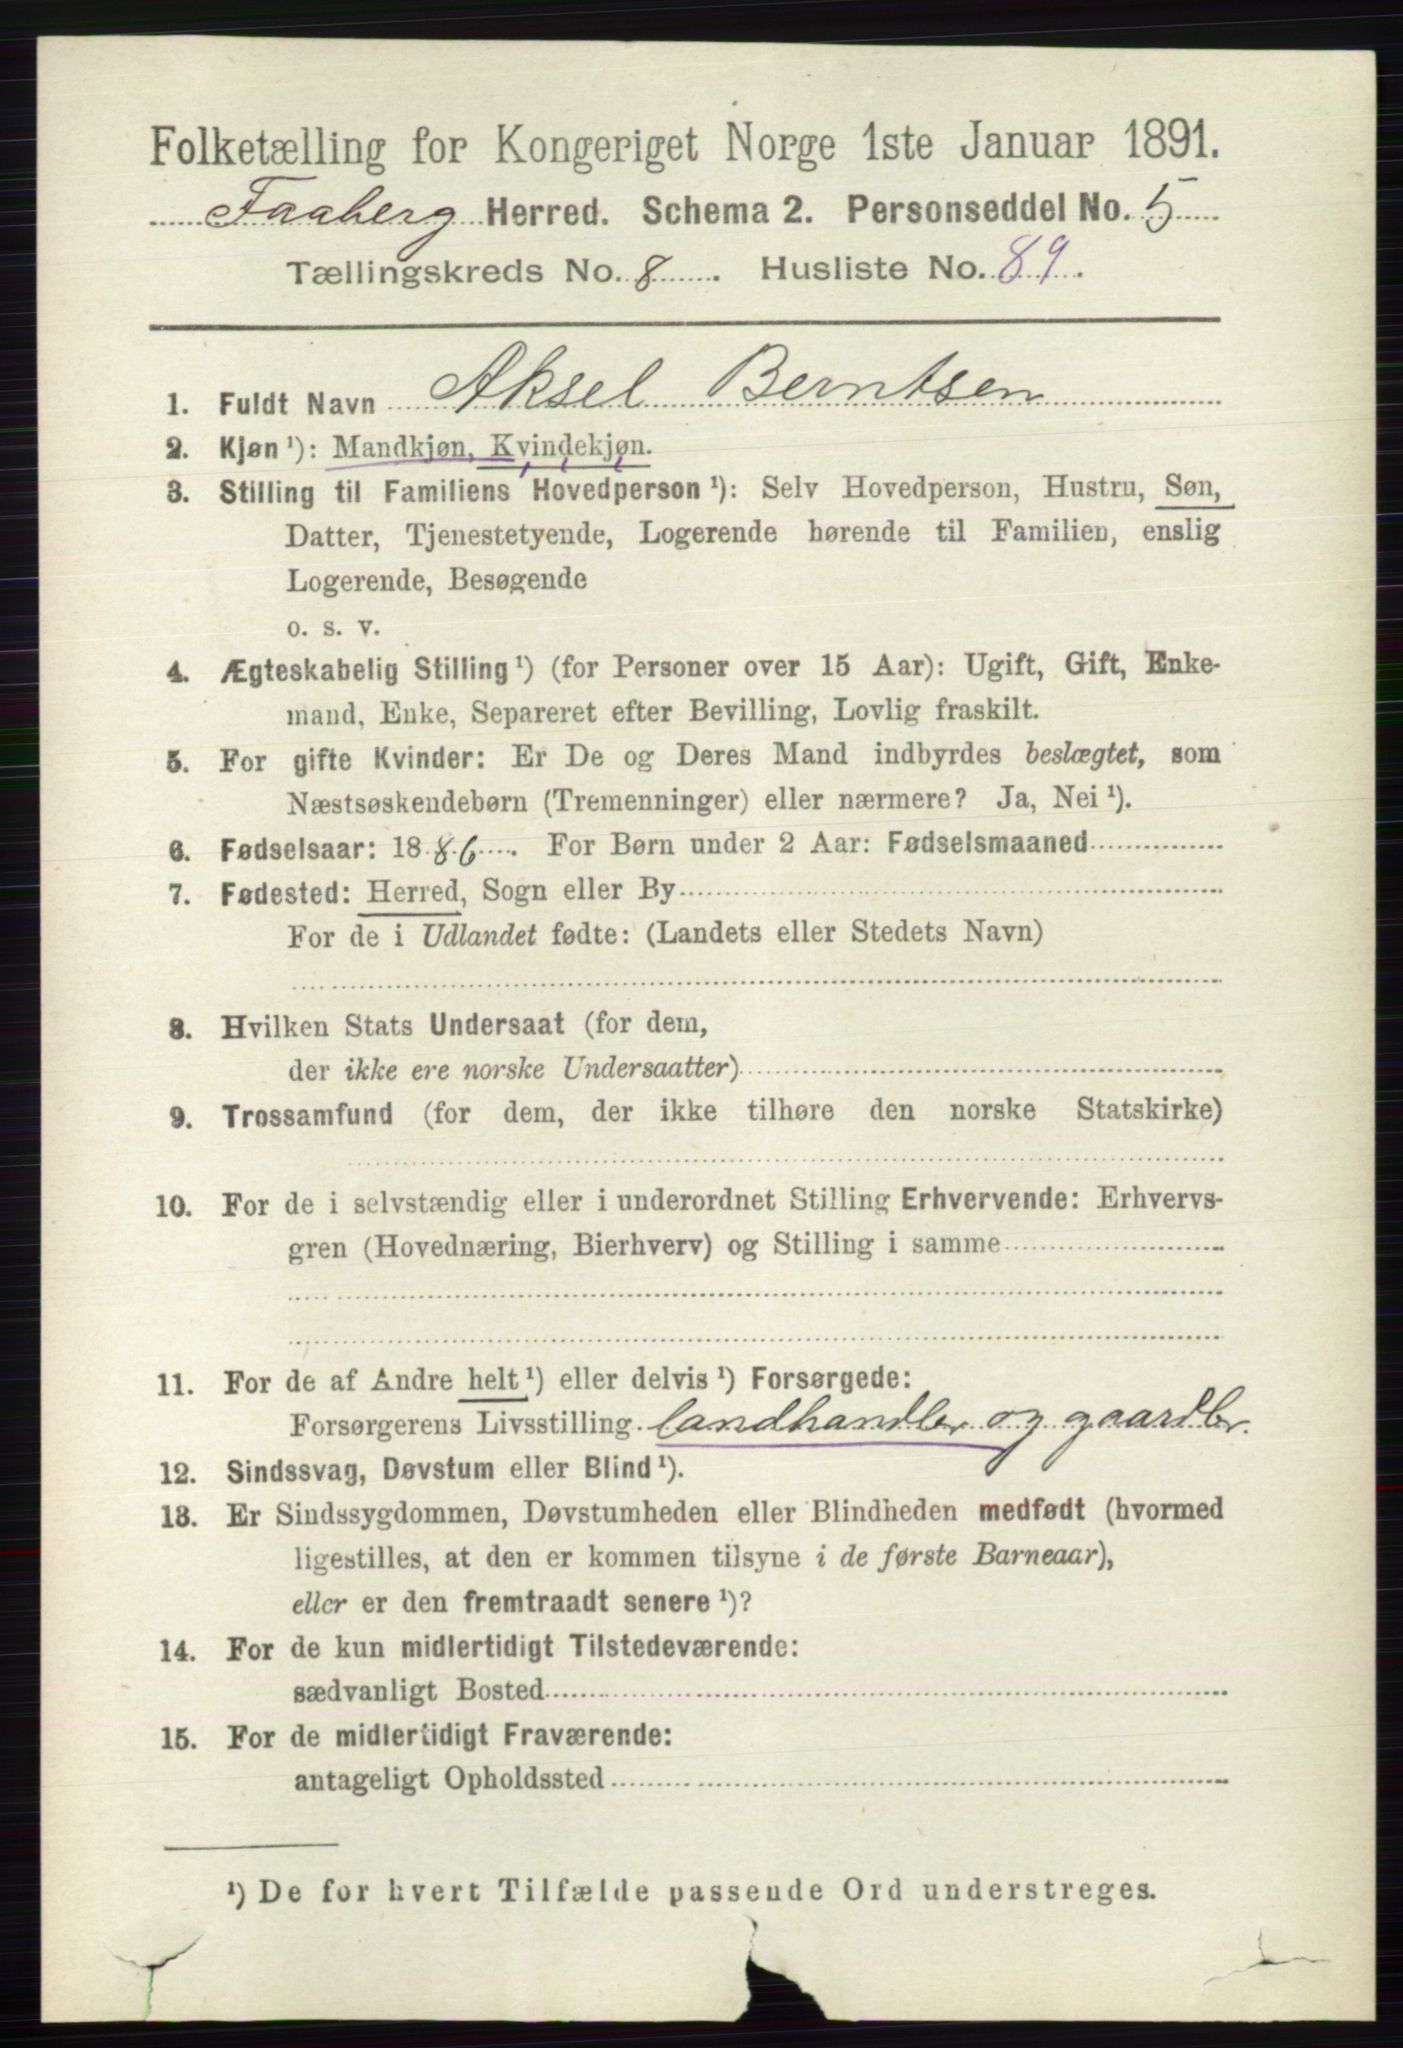 Folketælling for Kongeriget Norge 1ste Januar 1891.
Faaberg Herred. Schema 2. Personseddel No. 5
Tællingskreds No. 8. Husliste No. 89.
1. Fuldt Navn Aksel Berntsen
2. Kjøn ¹): Mandkjøn, Kvindekjøn.
3. Stilling til Familiens Hovedperson ¹): Selv Hovedperson, Hustru, Søn,
Datter, Tjenestetyende, Logerende hørende til Familien, enslig
Logerende, Besøgende
o. s. v.
4. Ægteskabelig Stilling ¹) (for Personer over 15 Aar): Ugift, Gift, Enke-
mand, Enke, Separeret efter Bevilling, Lovlig fraskilt.
5. For gifte Kvinder: Er De og Deres Mand indbyrdes beslægtet, som
Næstsøskendebørn (Tremenninger) eller nærmere? Ja, Nei ¹).
6. Fødselsaar: 1886. For Børn under 2 Aar: Fødselsmaaned
7. Fødested: Herred, Sogn eller By
For de i Udlandet fødte: (Landets eller Stedets Navn)
8. Hvilken Stats Undersaat (for dem,
der ikke ere norske Undersaatter)
9. Trossamfund (for dem, der ikke tilhøre den norske Statskirke)
10. For de i selvstændig eller i underordnet Stilling Erhvervende: Erhvervs-
gren (Hovednæring, Bierhverv) og Stilling i samme
11. For de af Andre helt ¹) eller delvis ¹) Forsørgede:
Forsørgerens Livsstilling landhandler og gaardbr.
12. Sindssvag, Døvstum eller Blind ¹).
13. Er Sindssygdommen, Døvstumheden eller Blindheden medfødt (hvormed
ligestilles, at den er kommen tilsyne i de første Barneaar),
eller er den fremtraadt senere ¹)?
14. For de kun midlertidigt Tilstedeværende:
sædvanligt Bosted
15. For de midlertidigt Fraværende:
antageligt Opholdssted
¹) De for hvert Tilfælde passende Ord understreges.